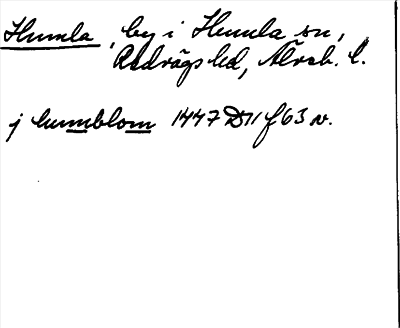 Humla, by i Humla sn,
Redvägs hd, Älvsb. l.
j humblom 1447 D11 f 63 v.